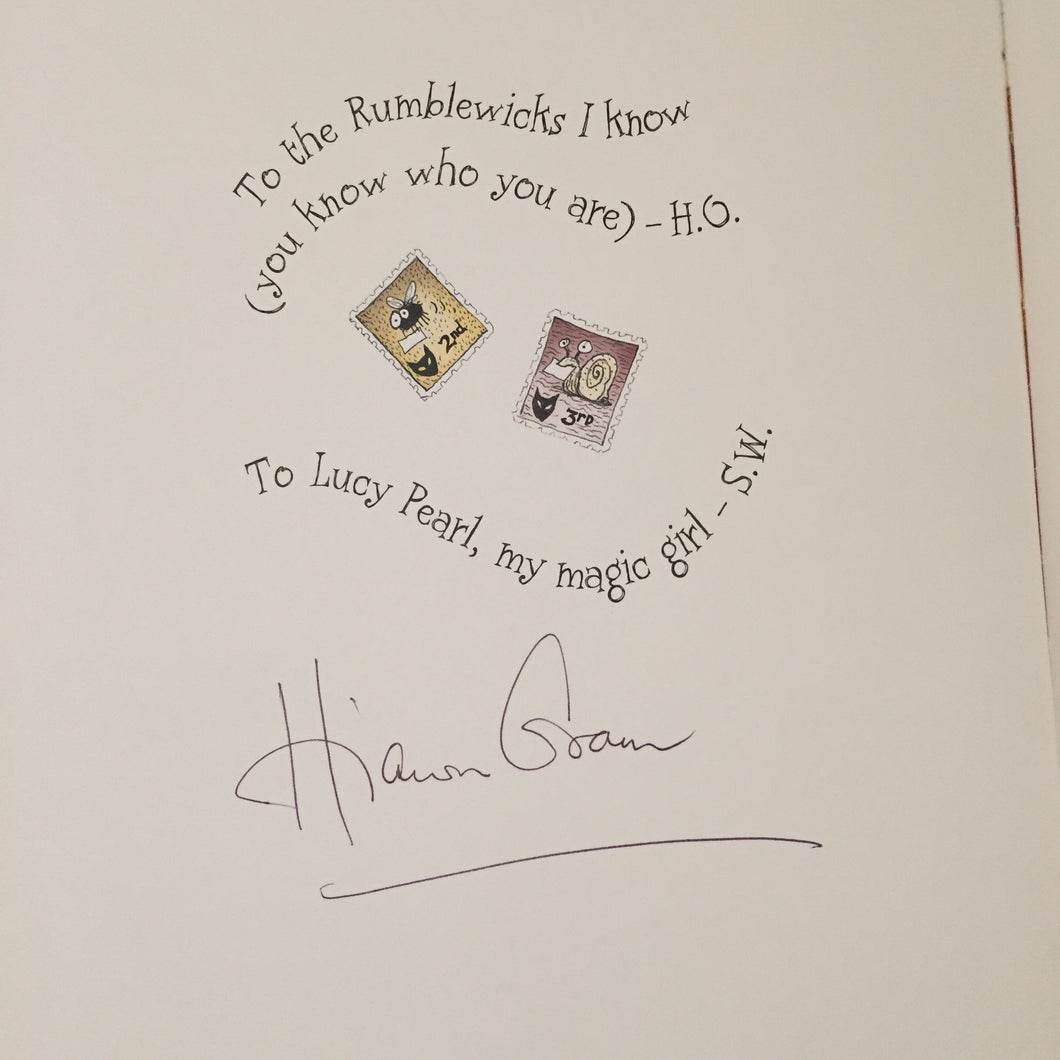 To the Rumblewicks I know
(you know who you are) – H.O.
2nd
3rd
To Lucy Pearl, my magic girl – S.W.
Hiawyn Oram